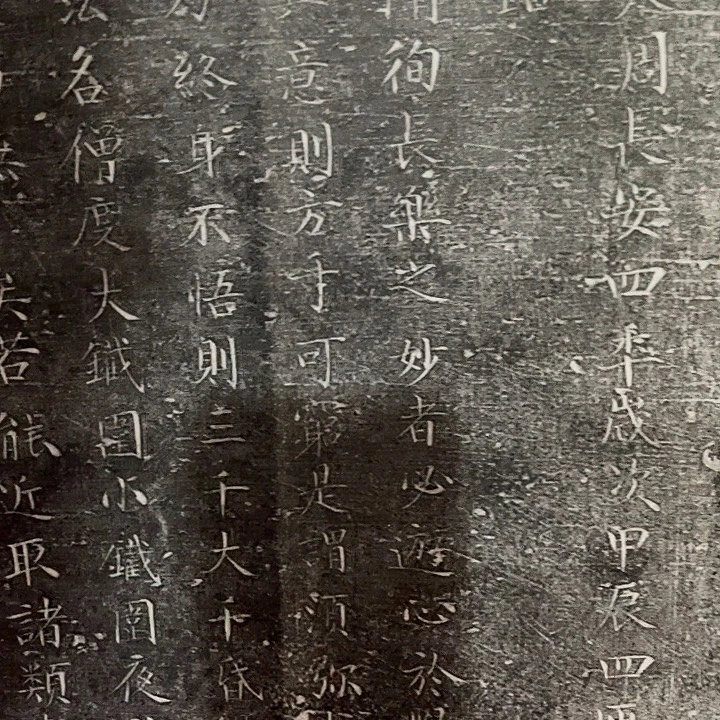 周長安四年歲次甲辰四
徇長樂之妙者必遊心於
意則方寸可窮是謂須弥
終身不悟則三千大千
名僧度大鐵圍小鐵圍夜
若能近取諸類